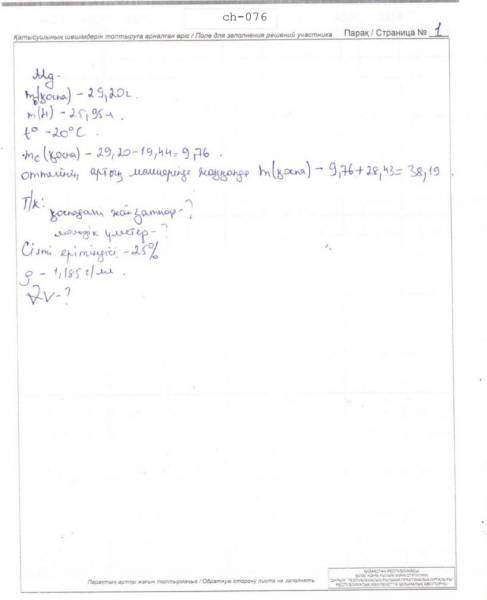 ch-076
Қатысушының шешімдерін толтыруға арналған өріс / Поле для заполнения решений участника Парақ / Страница № 1
Mg-
m(қоспа) – 29,20г.
m(H) – 25,95л.
t° – 20°C
m(қоспа) – 29,20-19,44=9,76.
оттегінің артық мөлшерінде жаққанда m(қоспа) – 9,76+28,43=38,19
Т/к:
қоспадағы жай заттар-?
мольдік үлестер-?
Сілті ерітіндісі – 25%
ρ – 1,185 г/мл.
V-?
Парақтың артқы жағын толтырмаңыз / Обратную сторону листа не заполнять
ҚАЗАҚСТАН РЕСПУБЛИКАСЫ
БІЛІМ ЖӘНЕ ҒЫЛЫМ МИНИСТРЛІГІНІҢ